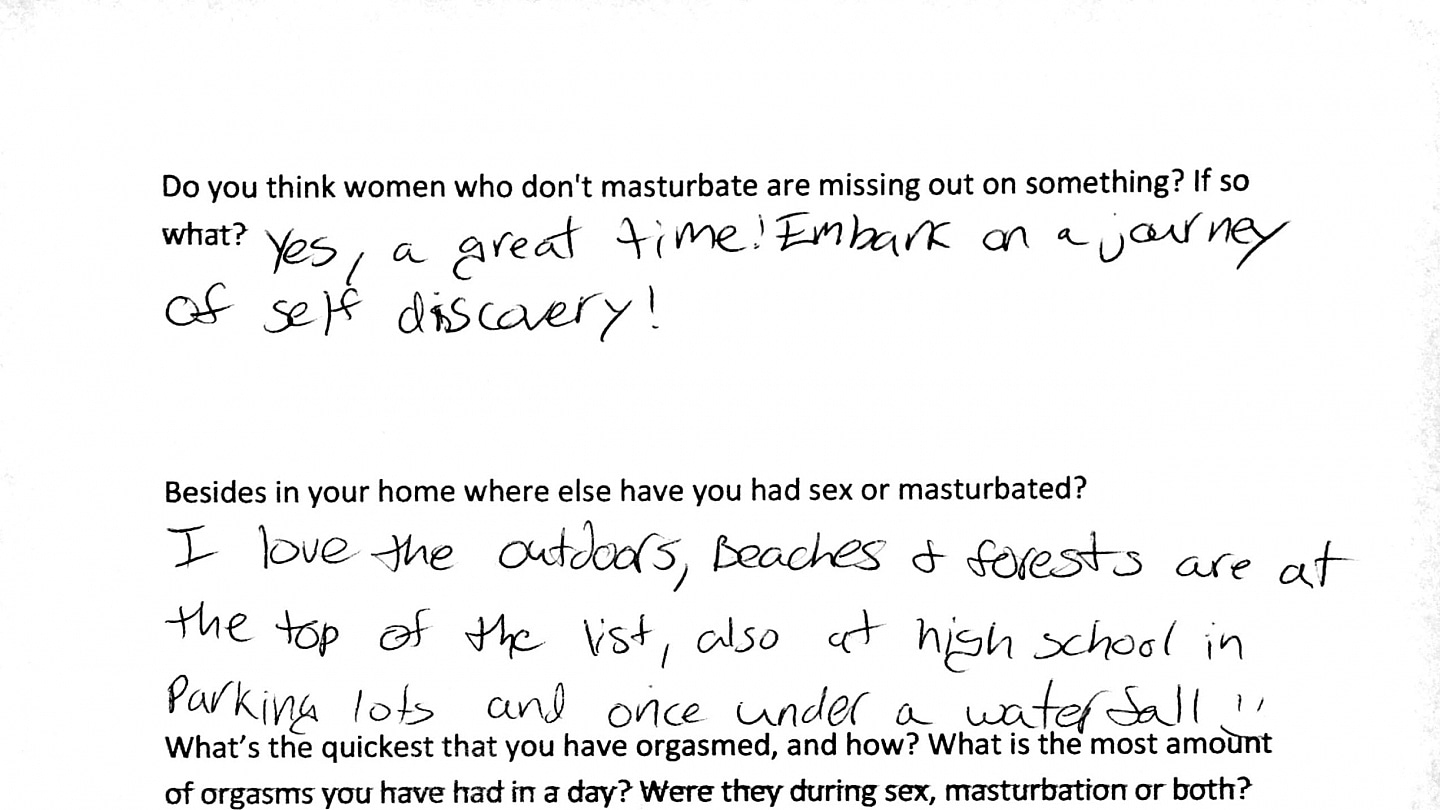 Do you think women who don't masturbate are missing out on something? If so
what? Yes, a great time! Embark on a journey
of self discovery!
Besides in your home where else have you had sex or masturbated?
I love the outdoors, Beaches & forests are at
the top of the list, also at high school in
Parking lots and once under a waterfall !!
What's the quickest that you have orgasmed, and how? What is the most amount
of orgasms you have had in a day? Were they during sex, masturbation or both?